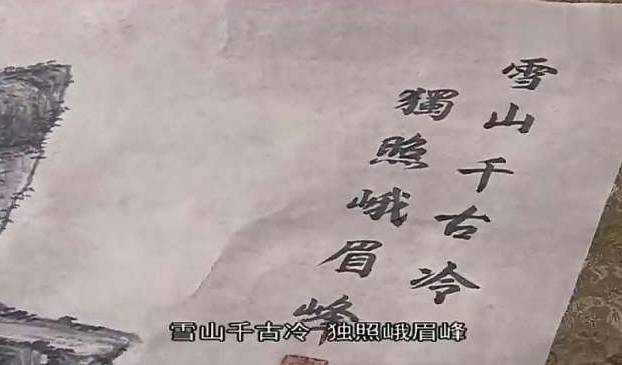 雪山千古冷
獨照峨眉峰
雪山千古冷 独照峨眉峰